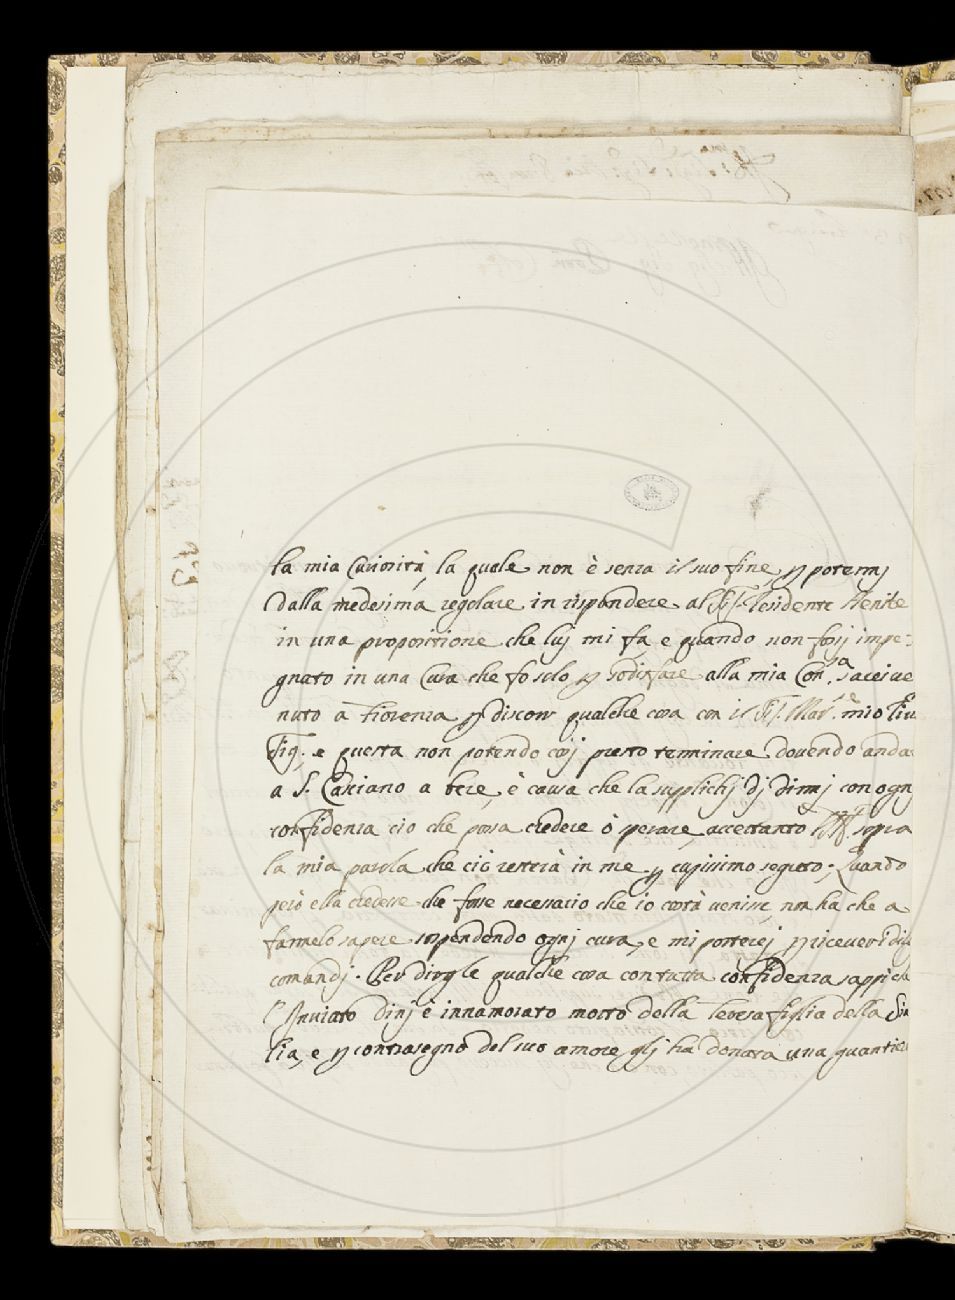 la mia Curiosità, la quale non è senza il suo fine, p potermj
dalla medesima regolare in rispondere al Residente Stenite
in una propositione che luj mi fà, e quando non fossj impe-
gnato in una Cura che fo solo p sodisfare alla mia Con.sa acci ve
nuto à Fiorenza p discorr qualche cosa con il mio
Sig. e questa non potendo cosj presto terminare dovendo anda
a S. Casciano a bere, è causa che la supplichj dj dirmj con ognj
confidenza ciò che possa credere ò sperare, accertanto sopra
la mia parola che ciò resterà in me p cupissimo segreto; Quando
però ella credesse che fosse necessario che io costà venisse, non ha che a
farmelo sapere sospendendo ognj cura, e mi porterej p ricever i
comandj. Per dirgle qualche cosa con tutta confidenza sappi che
l'Inviato Dinj è innamorato morto della Teresa figlia della
lia, e p contrasegno del suo amore glj ha donata una quantie